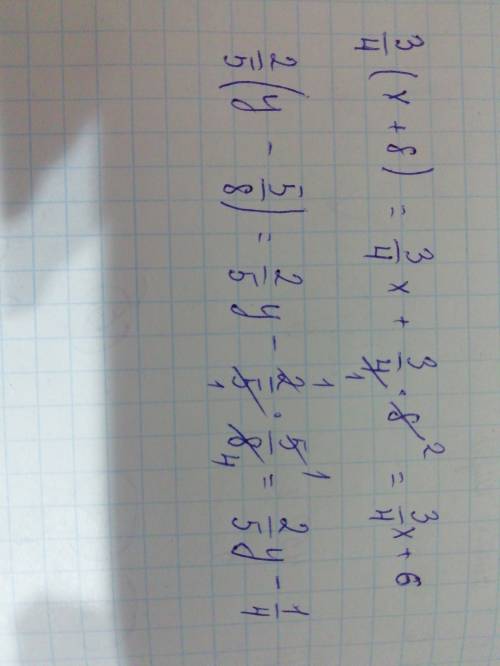 3/4 (x + 8) = 3/4 x + 3/4 1 · 8 2 = 3/4 x + 6
2/5 (y - 5/8) = 2/5 y - 2 1/5 1 · 5 1/8 4 = 2/5 y - 1/4